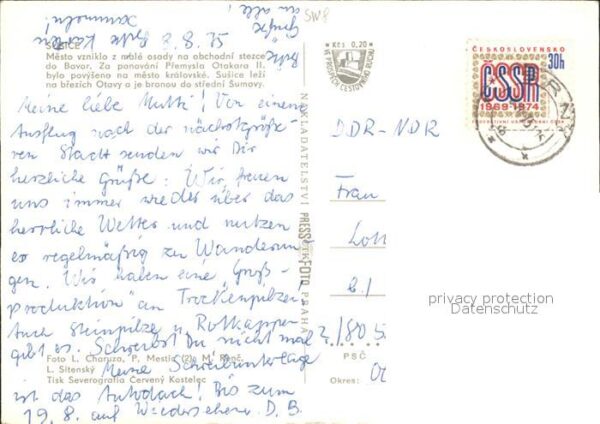 8.8.75
SUŠICE
Město vzniklo z malé osady na obchodní stezce
do Bavor. Za panování Přemysla Otakara II.
bylo povýšeno na město královské. Sušice leží
na březích Otavy a je branou do střední Šumavy.
Meine liebe Mutti! Von einem
Ausflug nach der nächstgröße-
ren Stadt senden wir Dir
herzliche Grüße. Wir freuen
uns immer wieder über das
herrliche Wetter und nutzen
es regelmäßig zu Wanderun-
gen. Wir haben eine "Groß-
produktion" an Trockenpilzen.
Auch Steinpilze u. Rotkappen
gibt es. Schreibst Du nicht mal?
Foto L. Charuza, P. Mestl (2) a M.
L. Sitenský
Meine Schreibunterlage
Tisk Severografia Červený Kostelec
ist das Autodach! Bis zum
19.8. auf Wiedersehen D. B.
SW8
Kčs 0,20
VE PROSPĚCH CESTOVNÍHO RUCHU
NAKLADATELSTVÍ PRESSFOTO PRAHA
ČESKOSLOVENSKO
30h
ČSSR
1969-1974
DDR-NDR
Frau
Lott
PSČ
Okres:
privacy protection
Datenschutz